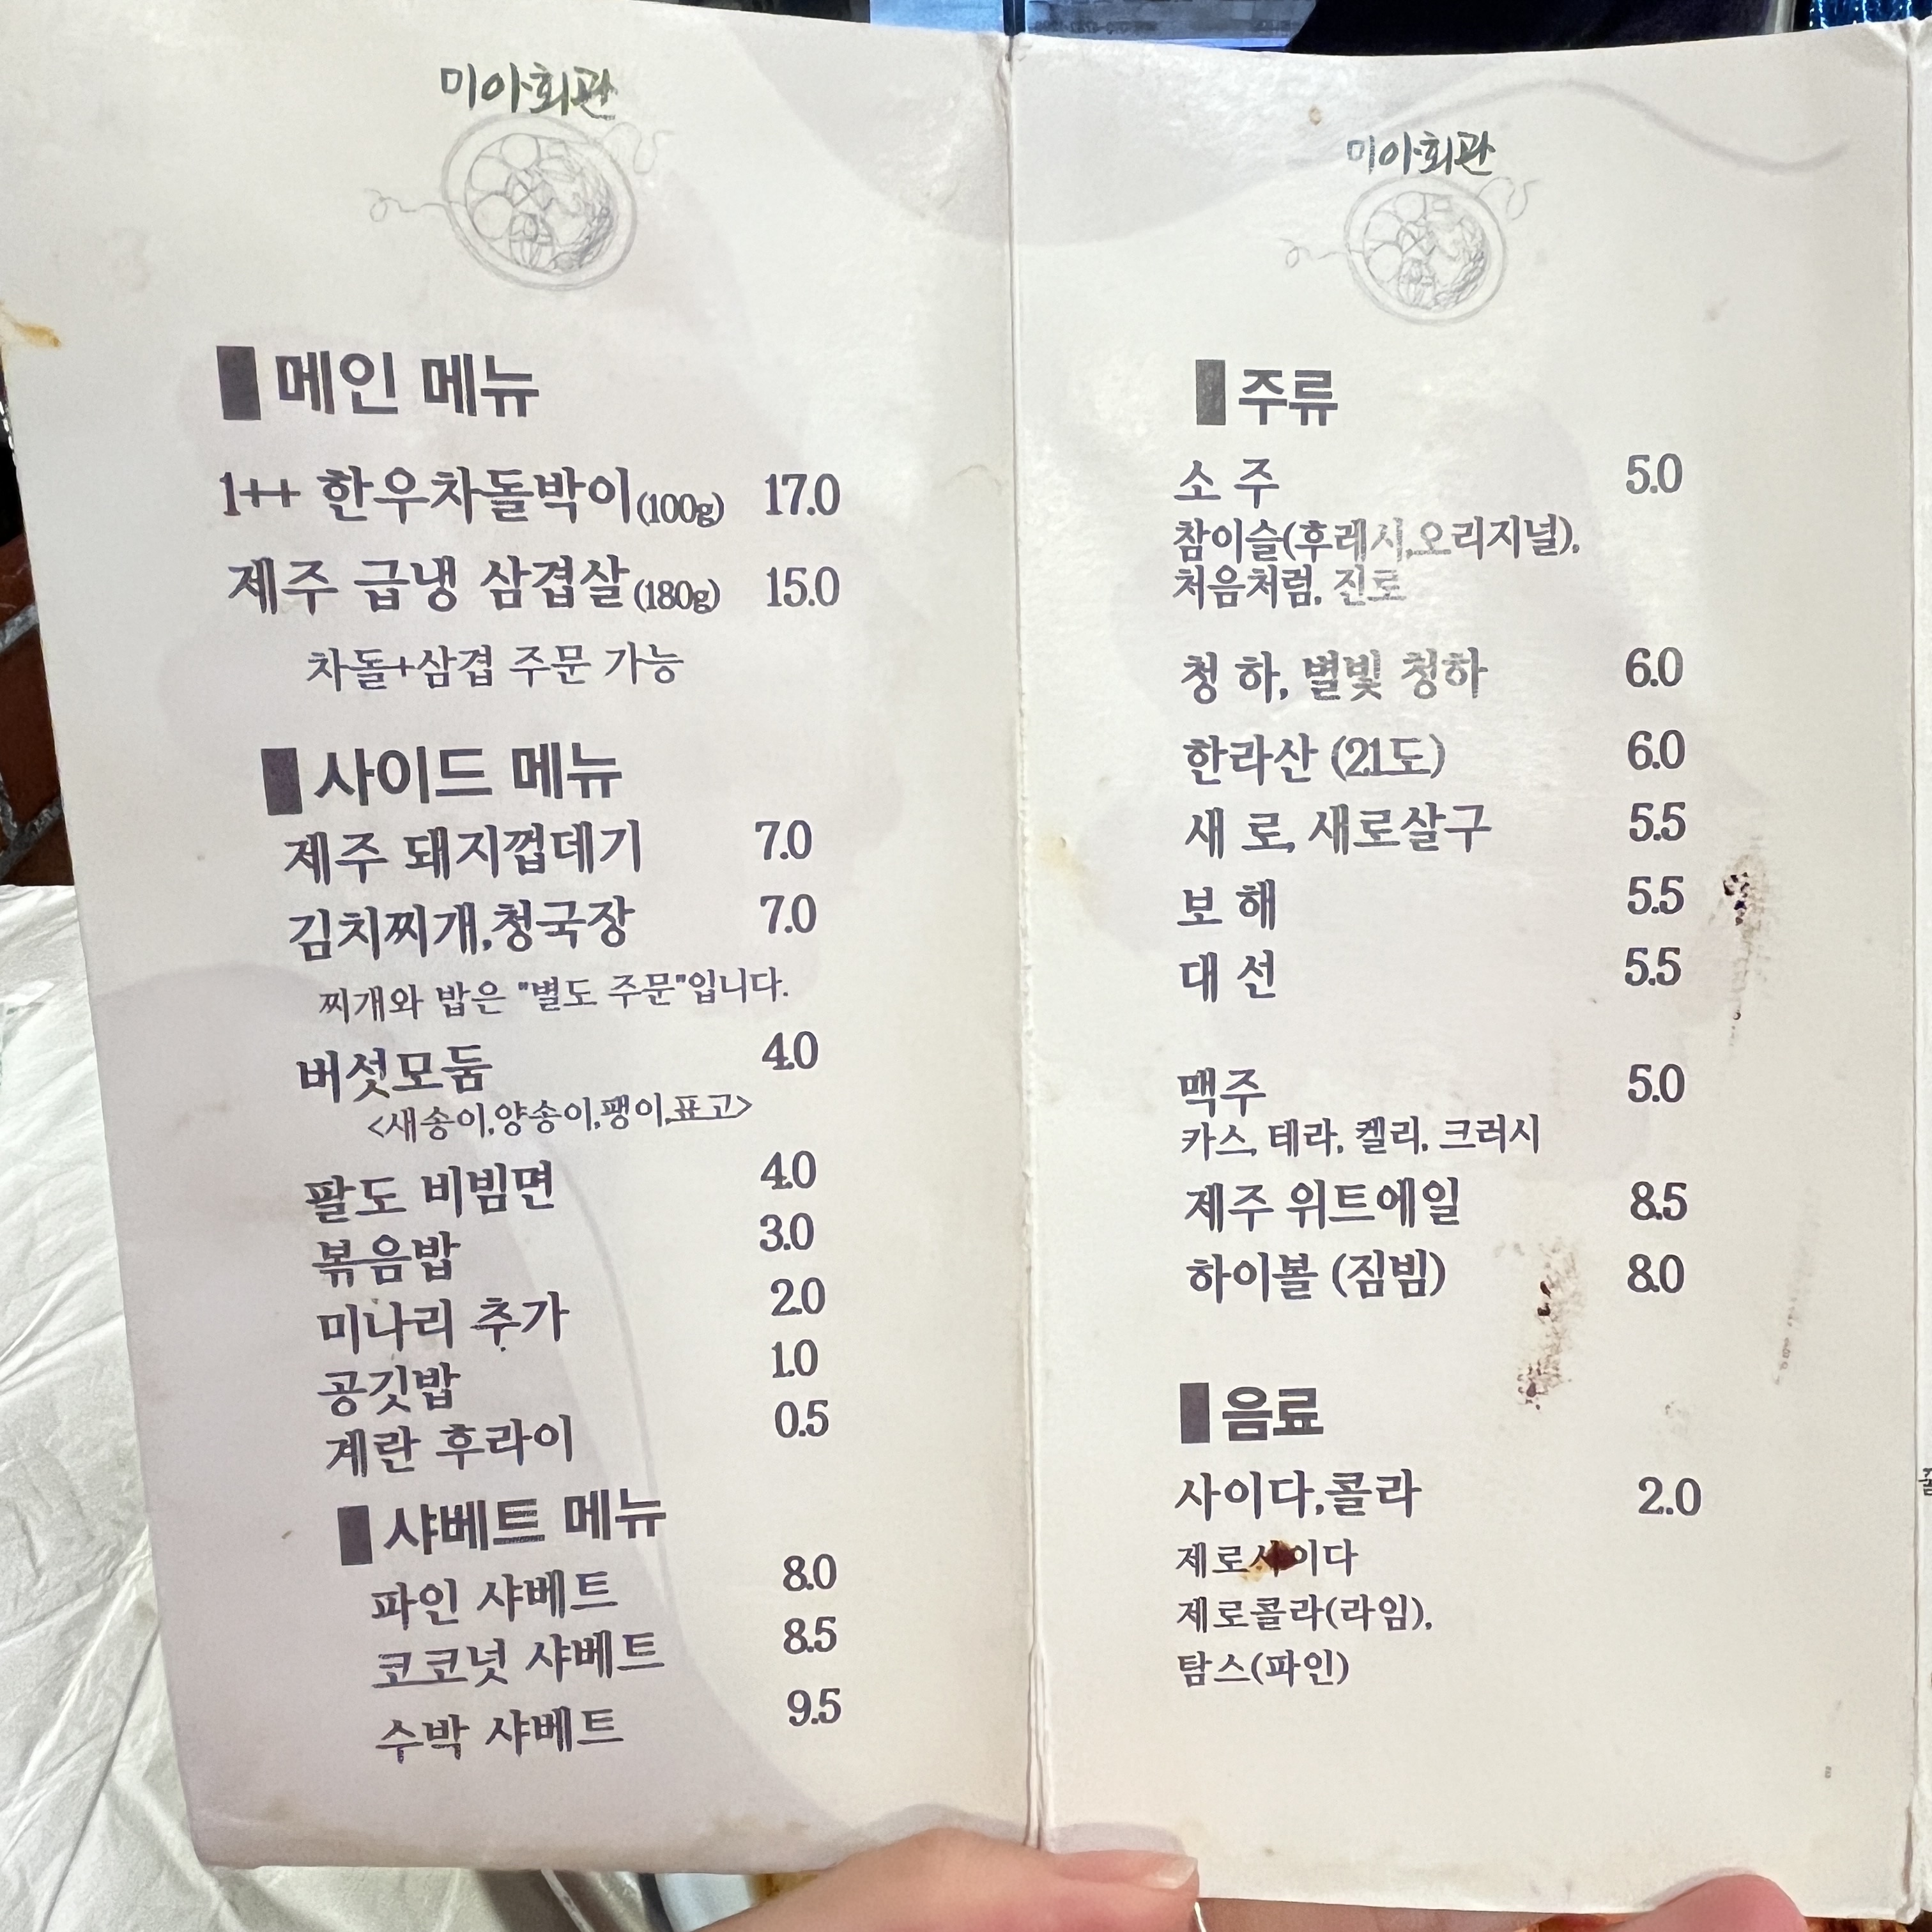 미아회관
메인 메뉴
1++ 한우차돌박이(100g) 17.0
제주 급냉 삼겹살(180g) 15.0
차돌+삼겹 주문 가능
사이드 메뉴
제주 돼지껍데기 7.0
김치찌개,청국장 7.0
찌개와 밥은 "별도 주문"입니다.
버섯모둠 4.0
<새송이,양송이,팽이,표고>
팔도 비빔면 4.0
볶음밥 3.0
미나리 추가 2.0
공깃밥 1.0
계란 후라이 0.5
샤베트 메뉴
파인 샤베트 8.0
코코넛 샤베트 8.5
수박 샤베트 9.5
미아회관
주류
소 주 5.0
참이슬(후레시,오리지널),
처음처럼, 진로
청 하, 별빛 청하 6.0
한라산 (21도) 6.0
새 로, 새로살구 5.5
보 해 5.5
대 선 5.5
맥주 5.0
카스, 테라, 켈리, 크러시
제주 위트에일 8.5
하이볼 (짐빔) 8.0
음료
사이다,콜라 2.0
제로사이다
제로콜라(라임),
탐스(파인)